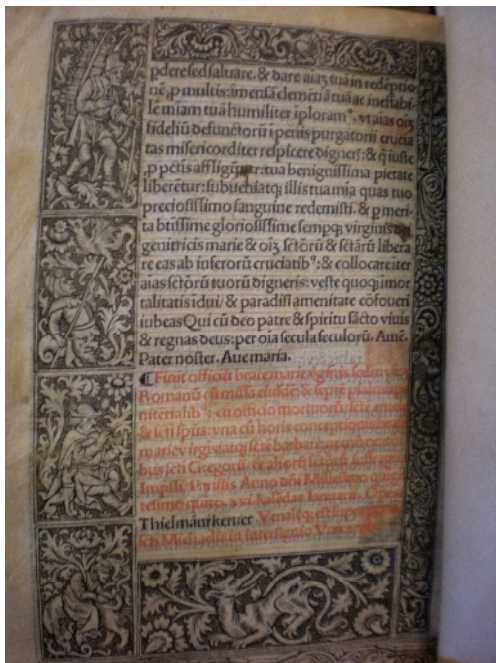 pdere sed saluare. & dare aīaʒ tuā in redēptio
nē, p multis: īmensā clemētiā tuā ac ineffabi-
lē miām tuā humiliter īploramꝰ. vt aīas oīʒ
fideliū defunctorū ī penis purgatorii crucia
tas misericorditer respicere digneris: & q̄ iuste
,p pctīs affligūtur: tua benignissima pietate
liberētur: subueniatqʒ illis tua mīa quas tuo
preciosissimo sanguine redemisti. & p meri-
ta btissime gloriosissime sempqʒ virginis dei
genitricis marie & oīʒ sctōrū & sctārū libera
re eas ab inferorū cruciatibꝰ: & collocare īter
aīas sctōrū tuorū digneris: veste quoqʒ īmor
talitatis īdui/ & paradisi amenitate cōfoueri
iubeas Qui cū deo patre & spiritu sācto viuis
& regnas deus: per oīa secula seculorū. Amē.
Pater noster. Aue maria.
¶ Finit officiū beate marie virginis secundū
Romanū cū missa eiusdē & septē psalmis pe
nitētialibꝰ: cū officio mortuorū, scte crucis
& scti spūs: vna cū horis conceptionis beate
marie virgīs atqʒ scte barbare: orationi
bus scti Gregorii, & aliorū sctōrū suffragiis
Impssē Parisiis Anno dñi Millesimo quigē
tesimo quīto, xvi. kalēdas Ianuarii. Opera
Thielmāni keruer Venalēqʒ est sup
scti Michaelis in intersignio